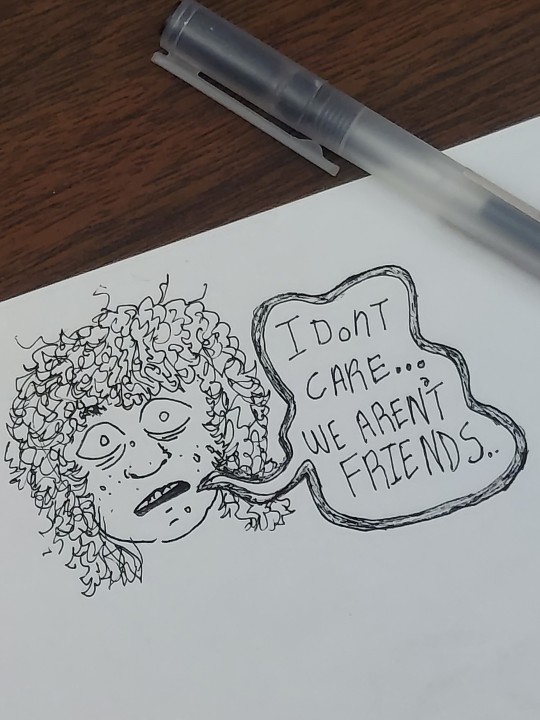 I DonT
CARE...
WE AREN'T
FRIENDS..